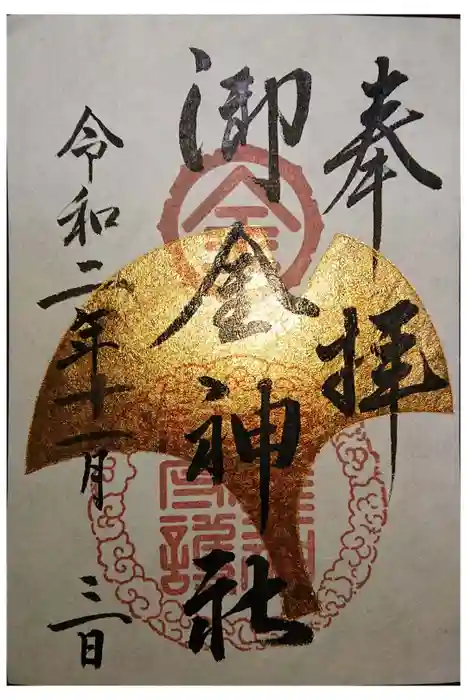 奉拝
御金神社
令和二年十一月三日
金